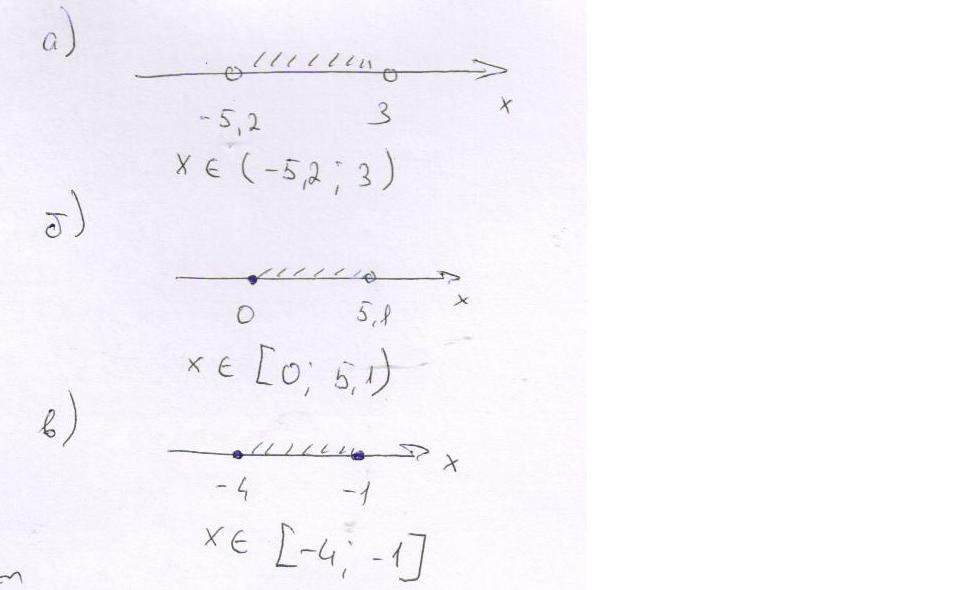 а)
-5,2 3 x
x ∈ (-5,2; 3)
б)
0 5,1 x
x ∈ [0; 5,1)
в)
x
-4 -1
x ∈ [-4; -1]